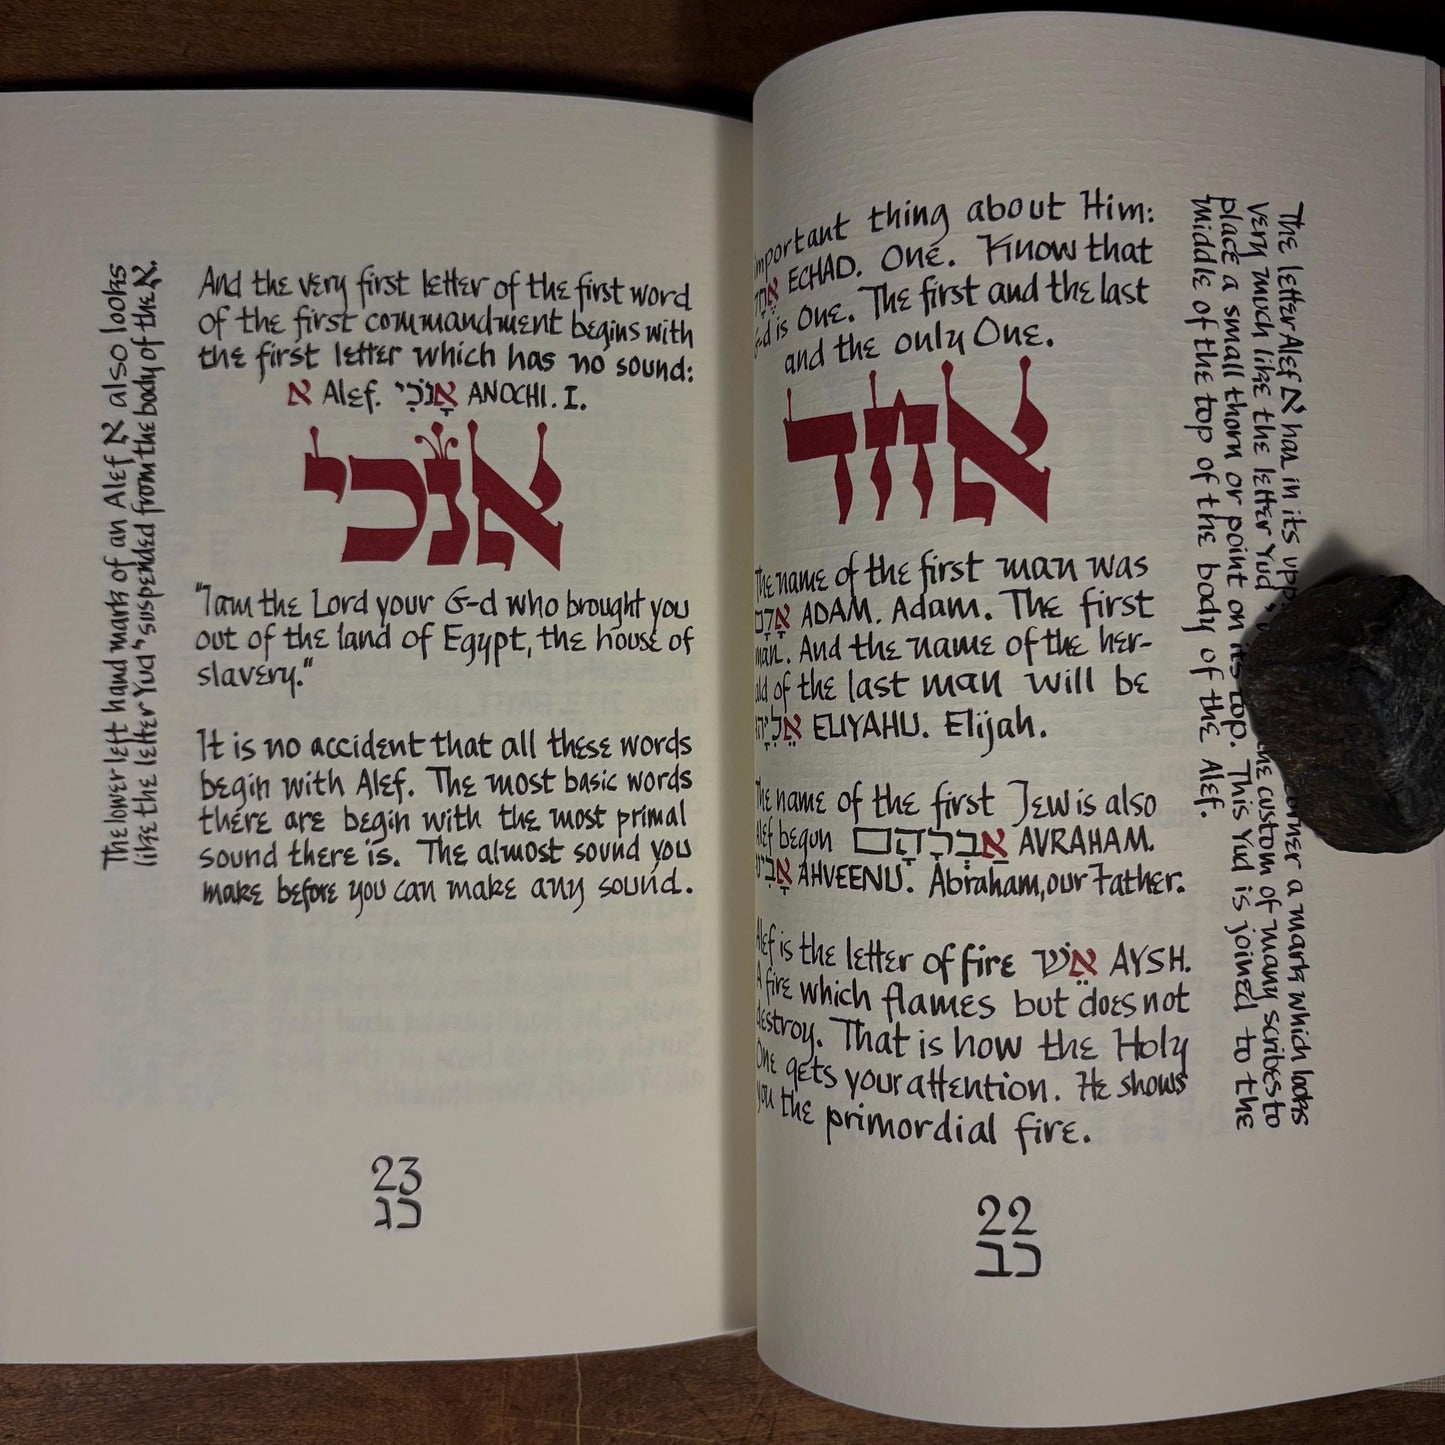 important thing about Him:
ECHAD. One. Know that
G-d is One. The first and the last
and the only One.
אחד
The name of the first man was
אָדָם ADAM. Adam. The first
man. And the name of the her-
ald of the last man will be
ELIYAHU. Elijah.
The name of the first Jew is also
Alef begun אַבְרָהָם AVRAHAM.
AHVEENU. Abraham, our Father.
Alef is the letter of fire אֵשׁ AYSH.
A fire which flames but does not
destroy. That is how the Holy
One gets your attention. He shows
you the primordial fire.
The letter Alef א has in its corner a mark which looks
very much like the letter Yud the custom of many scribes to
place a small thorn or point on its top. This Yud is joined to the
middle of the top of the body of the Alef.
22
כב
And the very first letter of the first word
of the first commandment begins with
the first letter which has no sound:
א Alef. אָנֹכִי ANOCHI. I.
אנכי
"I am the Lord your G-d who brought you
out of the land of Egypt, the house of
slavery."
It is no accident that all these words
begin with Alef. The most basic words
there are begin with the most primal
sound there is. The almost sound you
make before you can make any sound.
The lower left hand mark of an Alef א also looks
like the letter Yud י suspended from the body of the א.
23
כג